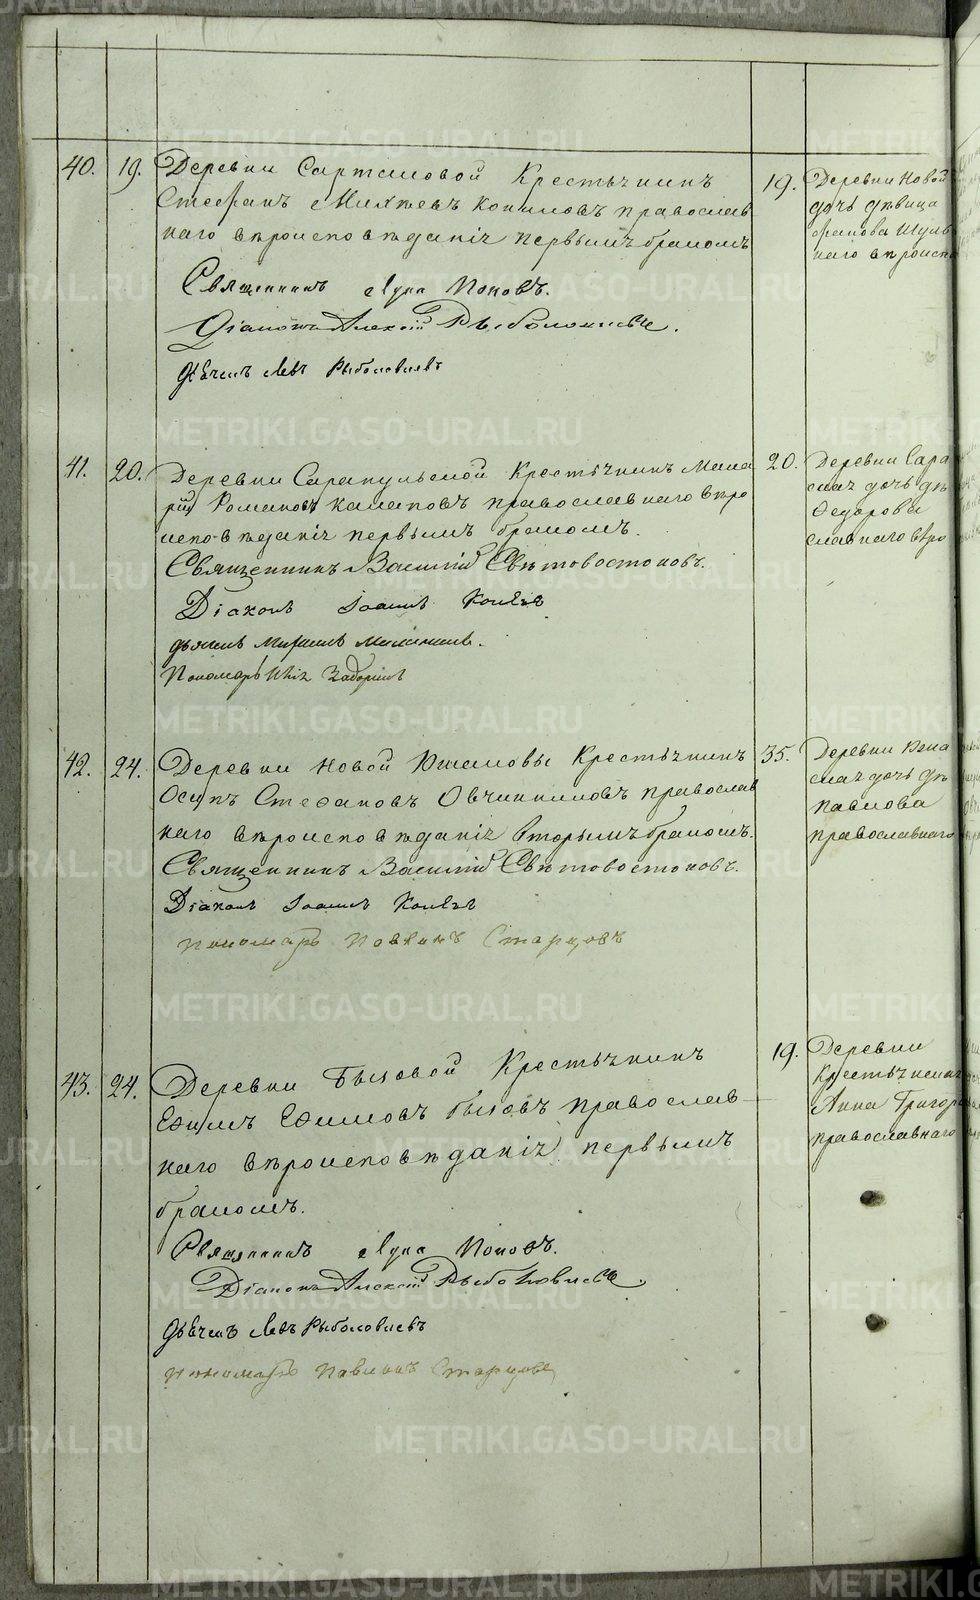 40. 19. Деревни Сартаковой Крестьянинъ
Стефанъ Михѣевъ Копыловъ православ-
наго вѣроисповѣданія первымъ бракомъ
Священникъ Лука Поповъ.
Діаконъ Алексій Рыболовлевъ.
Дьячекъ Левъ Рыболовлевъ
19. Деревни Новой
дочь дѣвица
наго вѣроиспо
41. 20. Деревни Сарапульской Крестьянинъ Мака
рій Романовъ православнаго вѣро
исповѣданія первымъ бракомъ.
Священникъ Василій Свѣтовостоковъ.
Діаконъ Іоаннъ
Пономарь Задоринъ
20. Деревни Сара
ская дочь дѣ
Федорова
славнаго вѣро
42. 24. Деревни Новой Крестьянинъ
Осипъ Стефановъ Овчинниковъ православ
наго вѣроисповѣданія вторымъ бракомъ.
Священникъ Василій Свѣтовостоковъ.
Діаконъ Іоаннъ
Пономарь Старцовъ
35. Деревни
ская дочь дѣ
Павлова
православнаго
43. 24. Деревни Быковой Крестьянинъ
Ефимъ Ефимовъ Быковъ православ-
наго вѣроисповѣданія первымъ
бракомъ.
Священникъ Лука Поповъ.
Діаконъ Алексій Рыболовлевъ.
Дьячекъ Левъ Рыболовлевъ
Пономарь Старцовъ
19. Деревни
Крестьянская
Анна Григор
православнаго
METRIKI.GASO-URAL.RU